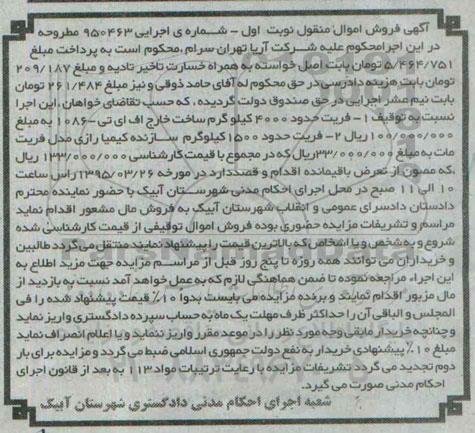 آگهی فروش اموال منقول نوبت اول - شماره ی اجرایی ۹۵۰۴۶۳ مطروحه
در این اجرا محکوم علیه شرکت آریا تهران سرام ،محکوم است به پرداخت مبلغ
۵/۴۶۴/۷۵۱ تومان بابت اصل خواسته به همراه خسارت تاخیر تادیه و مبلغ ۲۰۹/۱۸۷
تومان بابت هزینه دادرسی در حق محکوم له آقای حامد ذوقی و نیز مبلغ ۲۶۱/۴۸۴ تومان
بابت نیم عشر اجرایی در حق صندوق دولت گردیده ، که حسب تقاضای خواهان، این اجرا
نسبت به توقیف ۱- فریت حدود ۴۰۰۰ کیلو گرم ساخت خارج اف ای تی -۱۰۸۶ به مبلغ
۱۰۰/۰۰۰/۰۰۰ ریال ۲- فریت حدود ۱۵۰۰ کیلوگرم سازنده کیمیا رازی مدل فریت
مات به مبلغ ۳۳/۰۰۰/۰۰۰ ریال که در مجموع با قیمت کارشناسی ۱۳۳/۰۰۰/۰۰۰ ریال
،که مصون از تعرض باقیمانده اقدام و قصد دارد در مورخه ۱۳۹۵/۰۳/۲۶ راس ساعت
۱۰ الی ۱۱ صبح در محل اجرای احکام مدنی شهرستان آبیک با حضور نماینده محترم
دادستان دادسرای عمومی و انقلاب شهرستان آبیک به فروش مال مشعور اقدام نماید
مراسم و تشریفات مزایده حضوری بوده فروش اموال توقیفی از قیمت کارشناسی شده
شروع و به شخص و یا اشخاص که بالاترین قیمت را پیشنهاد نمایند منتقل می گردد طالبین
و خریداران می توانند همه روزه تا پنج روز قبل از مراسم مزایده جهت مزید اطلاع به
این اجراء مراجعه نموده تا ضمن هماهنگی لازم که به عمل خواهد آمد نسبت به بازدید از
مال مزبور اقدام نمایند و برنده مزایده می بایست بدوا ۱۰٪ قیمت پیشنهاد شده را فی
المجلس و الباقی آن را حداکثر ظرف مهلت یک ماه به حساب سپرده دادگستری واریز نماید
و چنانچه خریدار مابقی وجه مورد نظر را در موعد مقرر واریز ننماید و یا اعلام انصراف نماید
مبلغ ۱۰٪ پیشنهادی خریدار به نفع دولت جمهوری اسلامی ضبط می گردد و مزایده برای بار
دوم تجدید می گردد تشریفات مزایده با رعایت ترتیبات مواد ۱۱۳ به بعد از قانون اجرای
احکام مدنی صورت می گیرد.
شعبه اجرای احکام مدنی دادگستری شهرستان آبیک